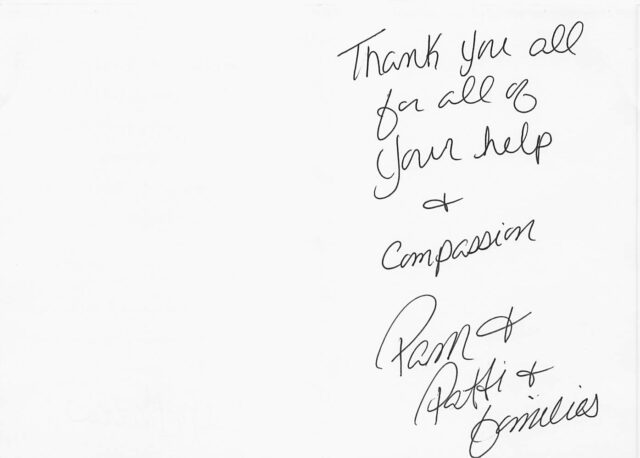 Thank you all
for all of
your help
+
Compassion
Pam +
Patti +
families